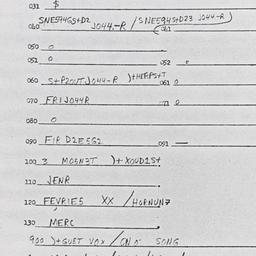 031 $
040 SNE594GS+D2 J044-R / SNE594S+D23 J044-R)
041
050 0
051 0 052 0
060 S+P20UTJ044-R )+HEPPS+T 061 0
070 FRIJ044R 071 0
080 0
090 FIR D2E5G2 091 —
100 3 MOSN3T )+ XOUD1S+
110 JENR
120 FEVRIES XX / HORNUN7
130 MERC
900 )+GUST VOX / ON O SONG